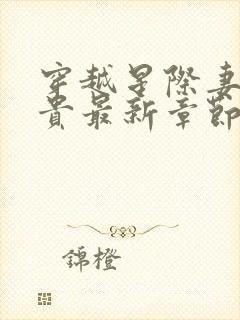 穿越星際妻
貴最新章節
錦橙